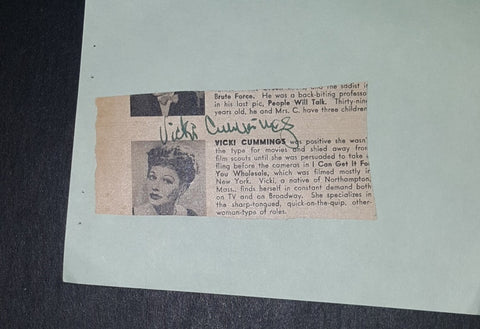 and the sadist in
Brute Force. He was a back-biting professo
in his last pic, People Will Talk. Thirty-nine
years old, he and Mrs. C. have three children
Vicki Cummings
VICKI CUMMINGS was positive she wasn'
the type for movies and shied away from
film scouts until she was persuaded to take
fling before the cameras in I Can Get It Fo
You Wholesale, which was filmed mostly in
New York. Vicki, a native of Northampton,
Mass., finds herself in constant demand both
on TV and on Broadway. She specializes in
the sharp-tongued, quick-on-the-quip, other-
woman-type of roles.